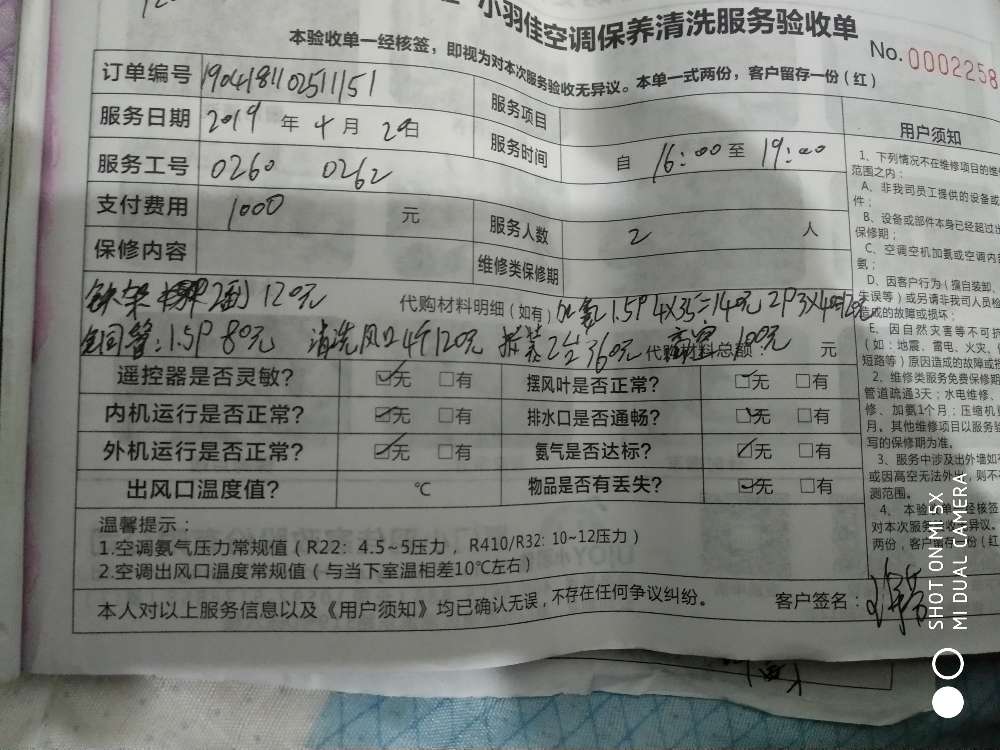 小羽佳空调保养清洗服务验收单
No. 0002258
本验收单一经核签，即视为对本次服务验收无异议。本单一式两份，客户留存一份（红）
订单编号 190418110251151 服务项目
服务日期 2019 年 4 月 2 日 服务时间 自 16:00 至 19:00
服务工号 0260 0262
支付费用 1000 元 服务人数 2 人
保修内容 维修类保修期
铁架 120元 代购材料明细（如有） 加氨 1.5P 4X35=140元 2P 3X4
铜管:1.5P 80元 清洗风口4个120元 拆装2台360元 代购材料总额： 100元 元
遥控器是否灵敏? ☑无 □有 摆风叶是否正常? ☑无 □有
内机运行是否正常? ☑无 □有 排水口是否通畅? ☑无 □有
外机运行是否正常? ☑无 □有 氨气是否达标? ☑无 □有
出风口温度值? ℃ 物品是否有丢失? ☑无 □有
温馨提示：
1.空调氨气压力常规值（R22: 4.5~5压力，R410/R32: 10~12压力）
2.空调出风口温度常规值（与当下室温相差10℃左右）
本人对以上服务信息以及《用户须知》均已确认无误，不存在任何争议纠纷。 客户签名：
用户须知
1、下列情况不在维修项目的维
范围之内：
A、非我司员工提供的设备或
件；
B、设备或部件本身已经超过出
保修期；
C、空调空机加氨或空调内
氨；
D、因客户行为（擅自装卸、
失误等）或另请非我司人员检
造成的故障或损坏；
E、因自然灾害等不可抗
（如：地震、雷电、火灾、
短路等）原因造成的故障或损
2、维修类服务免费保修期
管道疏通3天；水电维修、
修、加氨1个月；压缩机
月。其他维修项目以服务验
写的保修期为准。
3、服务中涉及出外墙如
或因高空无法外出，则不
测范围。
4、本验收单一经核签
对本次服务验收无异议。
两份，客户留存一份（红
SHOT ON MI 5X
MI DUAL CAMERA